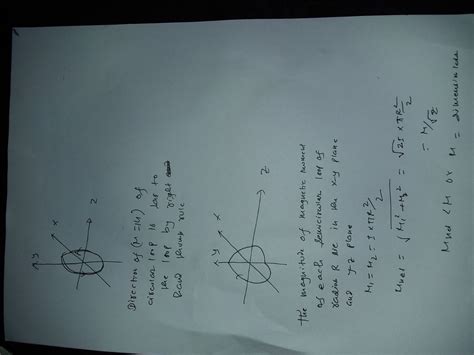 y
x
z
Direction of (M = M) of
circular loop is ⊥ar to
the loop by right
hand thumb rule
y
x
z
the magnitude of magnetic moment
of each semicircular loop of
radius R lie in the x-y plane
and y-z plane
M₁ = M₂ = I × πR²/2
Mnet = √M₁² + M₂² = √2 I × πR²/2
= M/√2
Mnet < M or M =